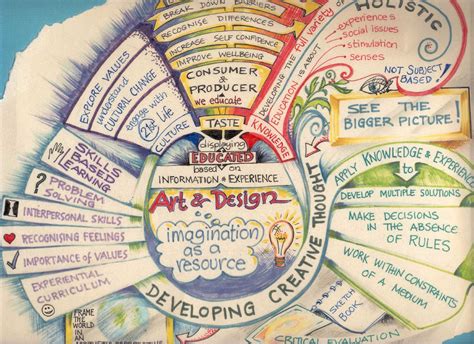 BREAK DOWN BARRIERS
RECOGNISE DIFFERENCES
INCREASE SELF CONFIDENCE
IMPROVE WELLBEING
CONSUMER
& PRODUCER
we educate
TASTE
displaying
EDUCATED
based on
INFORMATION & EXPERIENCE
EXPLORE VALUES
understand
CULTURAL CHANGE
engage with
21st Life
CULTURE
KNOWLEDGE
DEVELOPING the full variety of
EDUCATION IS ABOUT
HOLISTIC
experiences
social issues
stimulation
senses
NOT SUBJECT
BASED!
SEE THE
BIGGER PICTURE!
SKILLS
BASED
LEARNING
? PROBLEM
SOLVING
INTERPERSONAL SKILLS
RECOGNISING FEELINGS
IMPORTANCE of VALUES
EXPERIENTIAL
CURRICULUM
Art & Design
imagination
as a
resource
DEVELOPING CREATIVE THOUGHT
APPLY KNOWLEDGE & EXPERIENCE
to
DEVELOP MULTIPLE SOLUTIONS
MAKE DECISIONS
IN THE ABSENCE
OF RULES
WORK WITHIN CONSTRAINTS
OF A MEDIUM
SKETCH
BOOK
CRITICAL EVALUATION
FRAME
THE WORLD
IN AN